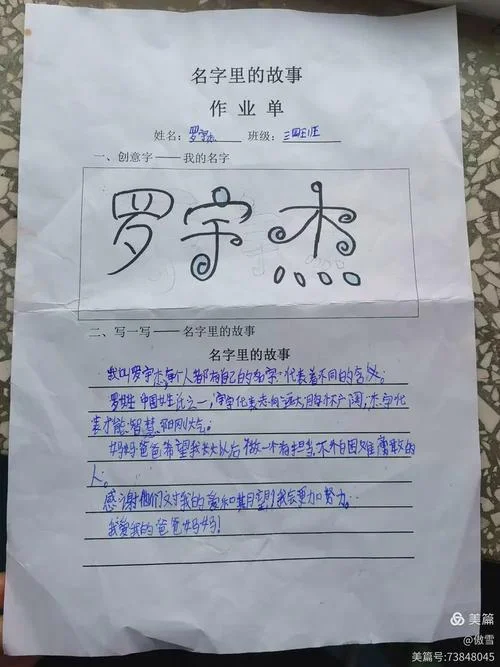 名字里的故事
作业单
姓名：罗宇杰 班级：三四班
一、创意字——我的名字
罗宇杰
二、写一写——名字里的故事
名字里的故事
我叫罗宇杰，每个人都有自己的名字代表着不同的含义。
罗姓中国姓氏之一，宇字代表志向远大胸怀广阔，杰字代
表才能智慧、阳刚大气。
妈妈爸爸希望我长大以后做一个有担当不怕困难勇敢的
人。
感谢他们对我的爱和期望！我会更加努力。
我爱我的爸爸妈妈！
美篇
@傲雪
美篇号:73848045